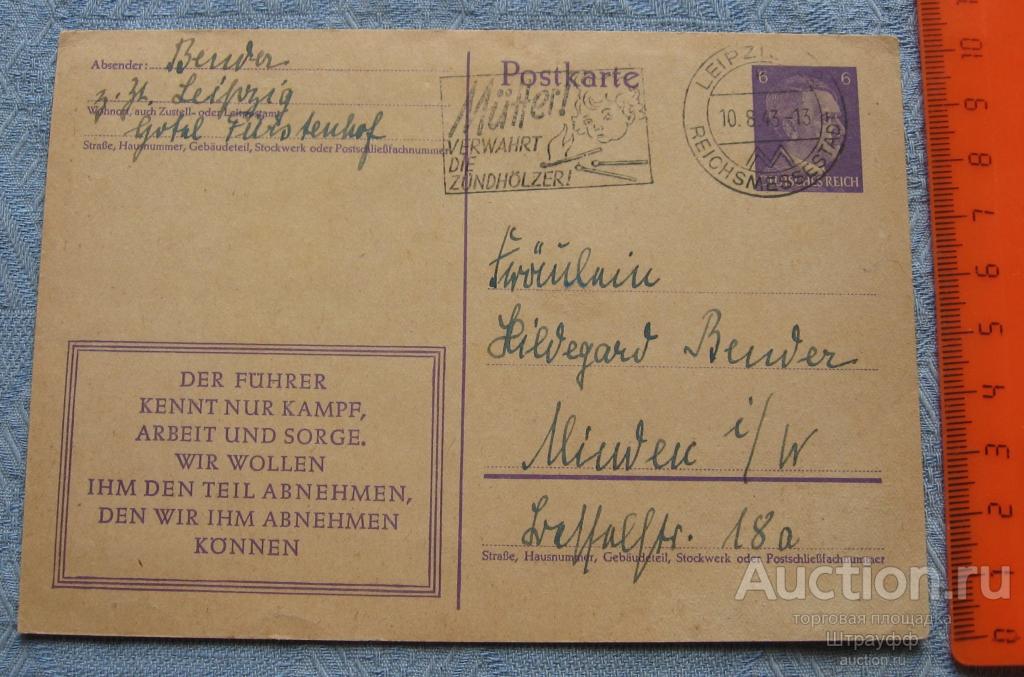 Absender: Bender
z. Zt. Leipzig
Wohnort, auch Zustell- oder Leitpostamt
Hotel Fürstenhof
Straße, Hausnummer, Gebäudeteil, Stockwerk oder Postschließfachnummer
Postkarte
Mütter!
VERWAHRT
DIE
ZÜNDHÖLZER!
LEIPZI
10.8.43.-13
REICHSMESSESTADT
6 6
DEUTSCHES REICH
Fräulein
Hildegard Bender
Minden i/W
18a
Straße, Hausnummer, Gebäudeteil, Stockwerk oder Postschließfachnummer
DER FÜHRER
KENNT NUR KAMPF,
ARBEIT UND SORGE.
WIR WOLLEN
IHM DEN TEIL ABNEHMEN,
DEN WIR IHM ABNEHMEN
KÖNNEN
10
9
8
7
6
5
4
3
2
1
0
Auction.ru
торговая площадка
Штрауфф
auction.ru